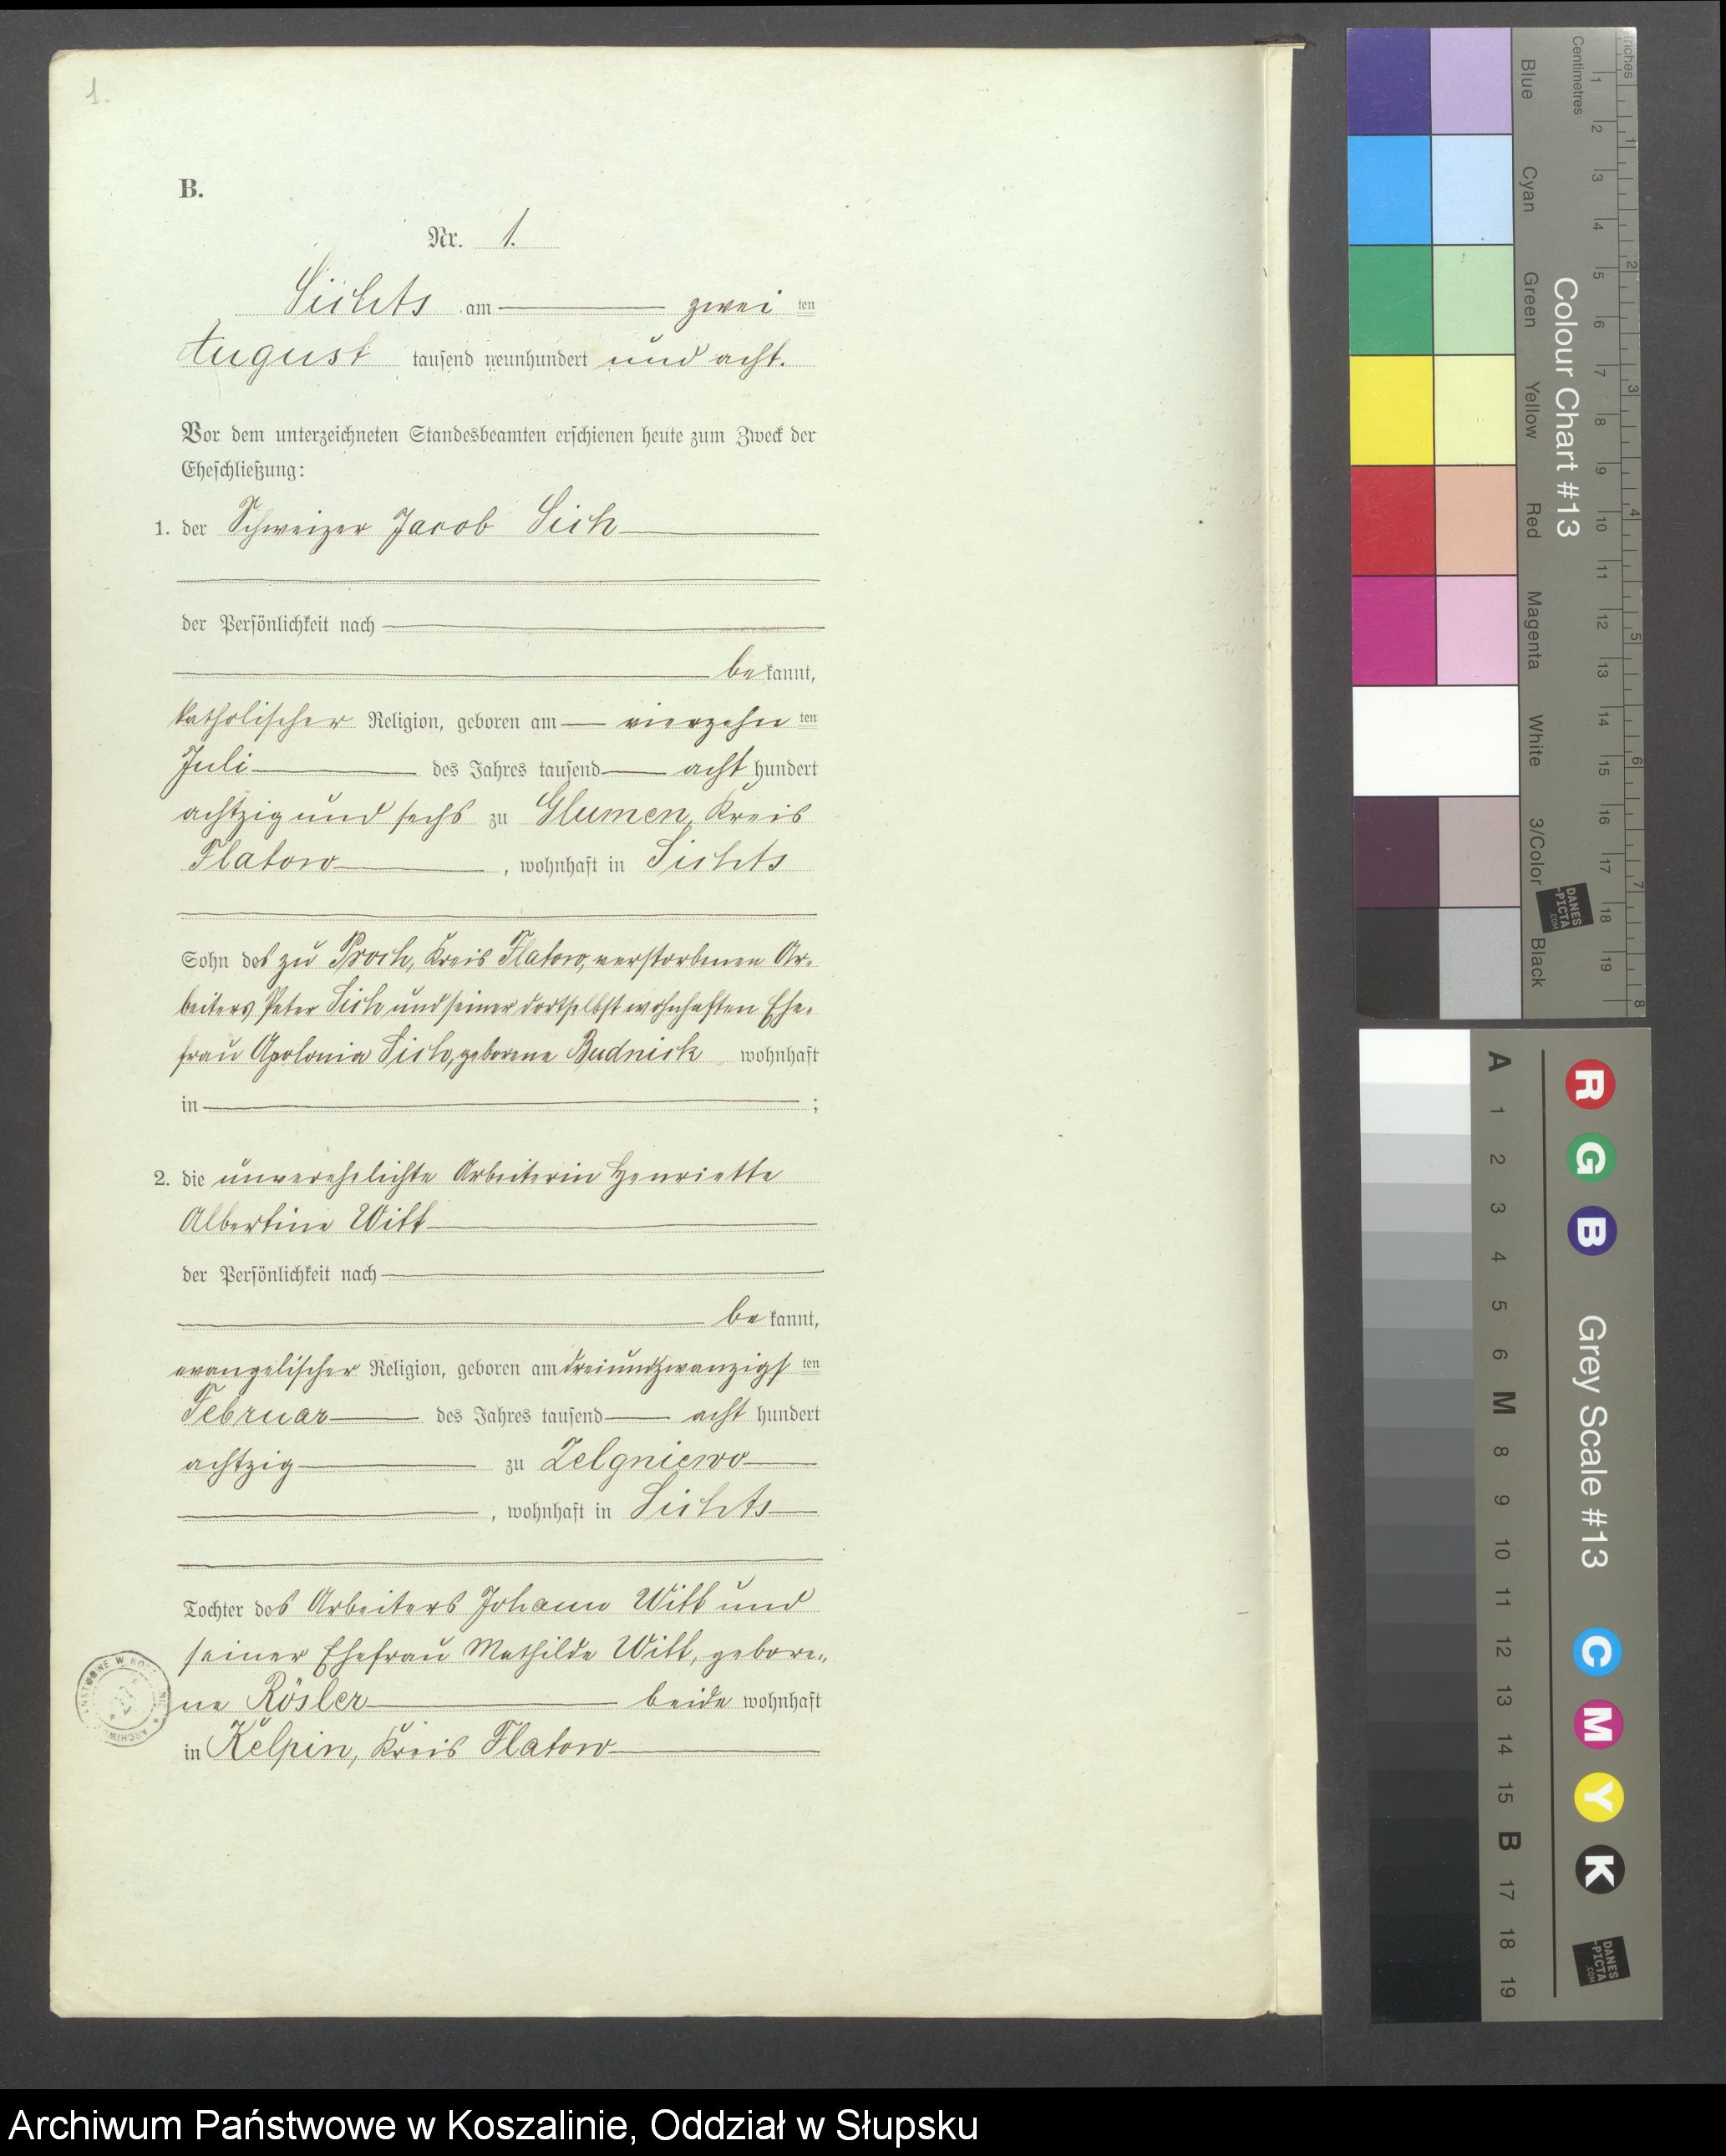 1.
B.
Nr. 1.
Sichts am zwei ten
August tausend neunhundert und acht.
Vor dem unterzeichneten Standesbeamten erschienen heute zum Zweck der
Eheschließung:
1. der Schweizer Jacob Sich
der Persönlichkeit nach
be kannt,
katholischer Religion, geboren am vierzehn ten
Juli des Jahres tausend acht hundert
achtzig und sechs zu Glumen, Kreis
Flatow, wohnhaft in Sichts
Sohn des zu Proch, Kreis Flatow, verstorbenen Ar-
beiters Peter Sich und seiner dortselbst wohnhaften Ehe-
frau Apolonia Sich, geborene Budnick wohnhaft
in ;
2. die unverehelichte Arbeiterin Henriette
Albertine Witt
der Persönlichkeit nach
be kannt,
evangelischer Religion, geboren am dreiundzwanzigs ten
Februar des Jahres tausend acht hundert
achtzig zu Zelgniewo
, wohnhaft in Sichts
Tochter des Arbeiters Johann Witt und
seiner Ehefrau Mathilde Witt, gebore-
ne Rösler beide wohnhaft
in Kelpin, Kreis Flatow
Archiwum Państwowe w Koszalinie, Oddział w Słupsku
Inches
Centimetres
1 2 3 4 5 6 7 8 9 10 11 12 13 14 15 16 17 18 19
1 2 3 4 5 6 7 8
Colour Chart #13
Blue Cyan Green Yellow Red Magenta White 3/Color Black
DANES
-PICTA
.COM
A 1 2 3 4 5 6 M 8 9 10 11 12 13 14 15 B 17 18 19
R G B
Grey Scale #13
C M Y K
DANES
-PICTA
.COM